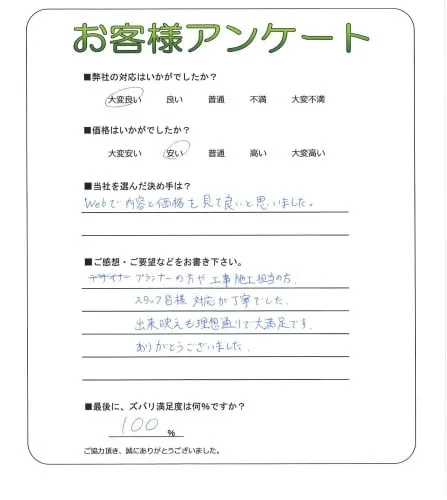 お客様アンケート
■弊社の対応はいかがでしたか？
大変良い 良い 普通 不満 大変不満
■価格はいかがでしたか？
大変安い 安い 普通 高い 大変高い
■当社を選んだ決め手は？
Webで内容と価格を見て良いと思いました。
■ご感想・ご要望などをお書き下さい。
デザイナー プランナーの方や工事施工担当の方、
スタッフ皆様 対応が丁寧でした。
出来映えも理想通りで大満足です。
ありがとうございました。
■最後に、ズバリ満足度は何%ですか？
100 %
ご協力頂き、誠にありがとうございました。